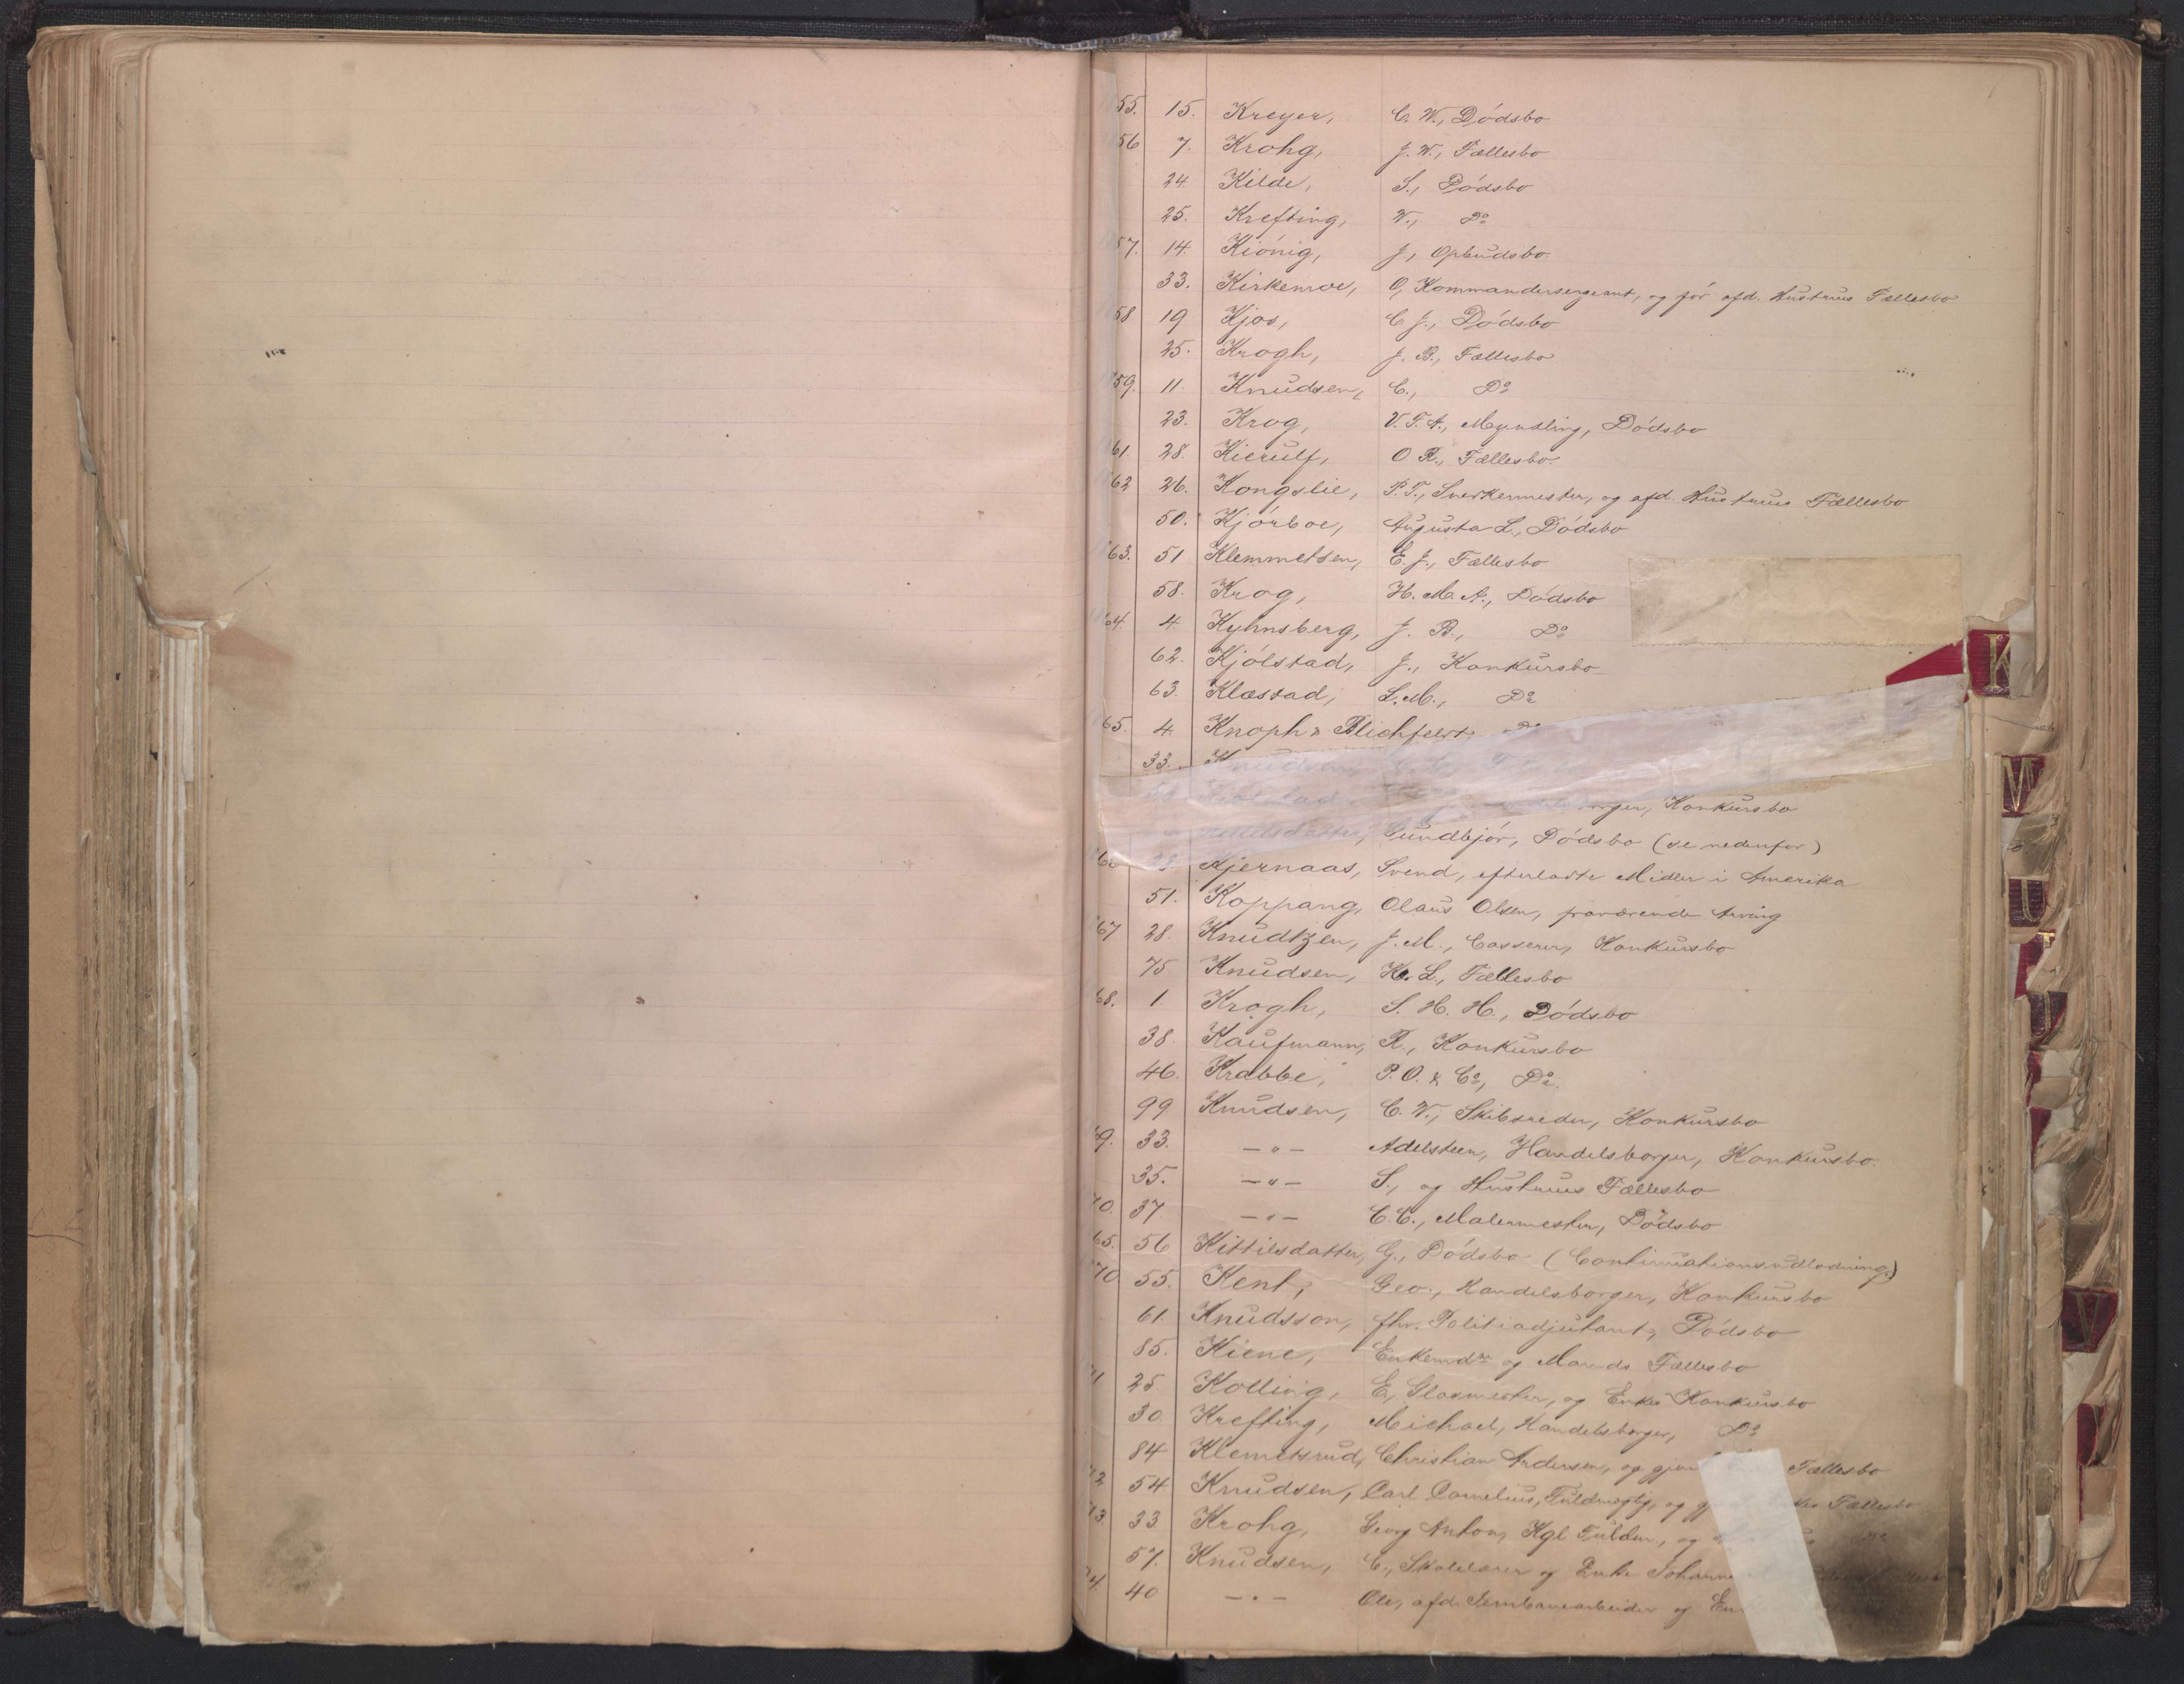 55. 15. Kreyer, C. W., Dødsbo
56 7. Krohg, J. W., Fællesbo
24. Kilde, S., Dødsbo
25. Krefting, W., Do
57. 14. Kiönig, J, Opbudsbo
33. Kirkemoe, O, Kommandersergeant, og før afd. Hustrus Fællesbo
58 19 Kjos, C J., Dødsbo
25. Krogh, J. B., Fællesbo
59. 11. Knudsen, C., Do
23. Krog, V. F. A., Myndling, Dødsbo
61. 28. Kierulf, O. R., Fællesbo.
62 26. Kongslie, P. T., Snedkermester, og afd. Hustrus Fællesbo
50. Kjørboe, Augusta L., Dødsbo
63. 51 Klemmetsen, E. J., Fællesbo
58. Krog, H. M. A., Dødsbo
64. 4. Kyhnsberg, J. B., Do
62. Kjølstad, J., Konkursbo
63. Klæstad, L. M., Do
65. 4. Knoph & Blichfeldt, Do
33. Knudsen,
Konkursbo
Gundbjør, Dødsbo (se nedenfor)
66 Kjernaas, Svend, efterladte Midler i Amerika
51. Koppang, Olaus Olsen, fraværende Arving
67 28. Knudtzen, J. M., Casserer, Konkursbo
75 Knudsen, K. L., Fællesbo
68. 1. Krogh, S. H. H., Dødsbo
38. Kaufmann, R., Konkursbo
46. Krabbe, P. O. & Co, Do.
99 Knudsen, C. W., Skibsreder, Konkursbo
69. 33. — " — Adelsteen, Handelsborger, Konkursbo.
35. — " — S., og Hustrues Fællesbo
70. 37 — " — C. C., Malermester, Dødsbo
65. 56 Kittilsdatter, G., Dødsbo (Continuationsudlodning)
70 55. Kent, Geo., Handelsborger, Konkursbo
61. Knudsson, fhv. Politiadjutant, Dødsbo
85. Kiene, Enkemd og Mands Fællesbo
71 25 Kolling, E, Glasmester, og Enkes Konkursbo
30 Krefting, Michael, Handelsborger, Do
84 Klemetsrud, Christian Andersen, og Fællesbo
72 54 Knudsen, Carl Cornelius, Fuldmægtig, og Fællesbo
73. 33 Krohg, Georg Anton, Kgl Fuldm., og
57. Knudsen, C., Skolelærer og Enke
74. 40 — " — Ole, afd. Jernbanearbeider og
K
M
U
V